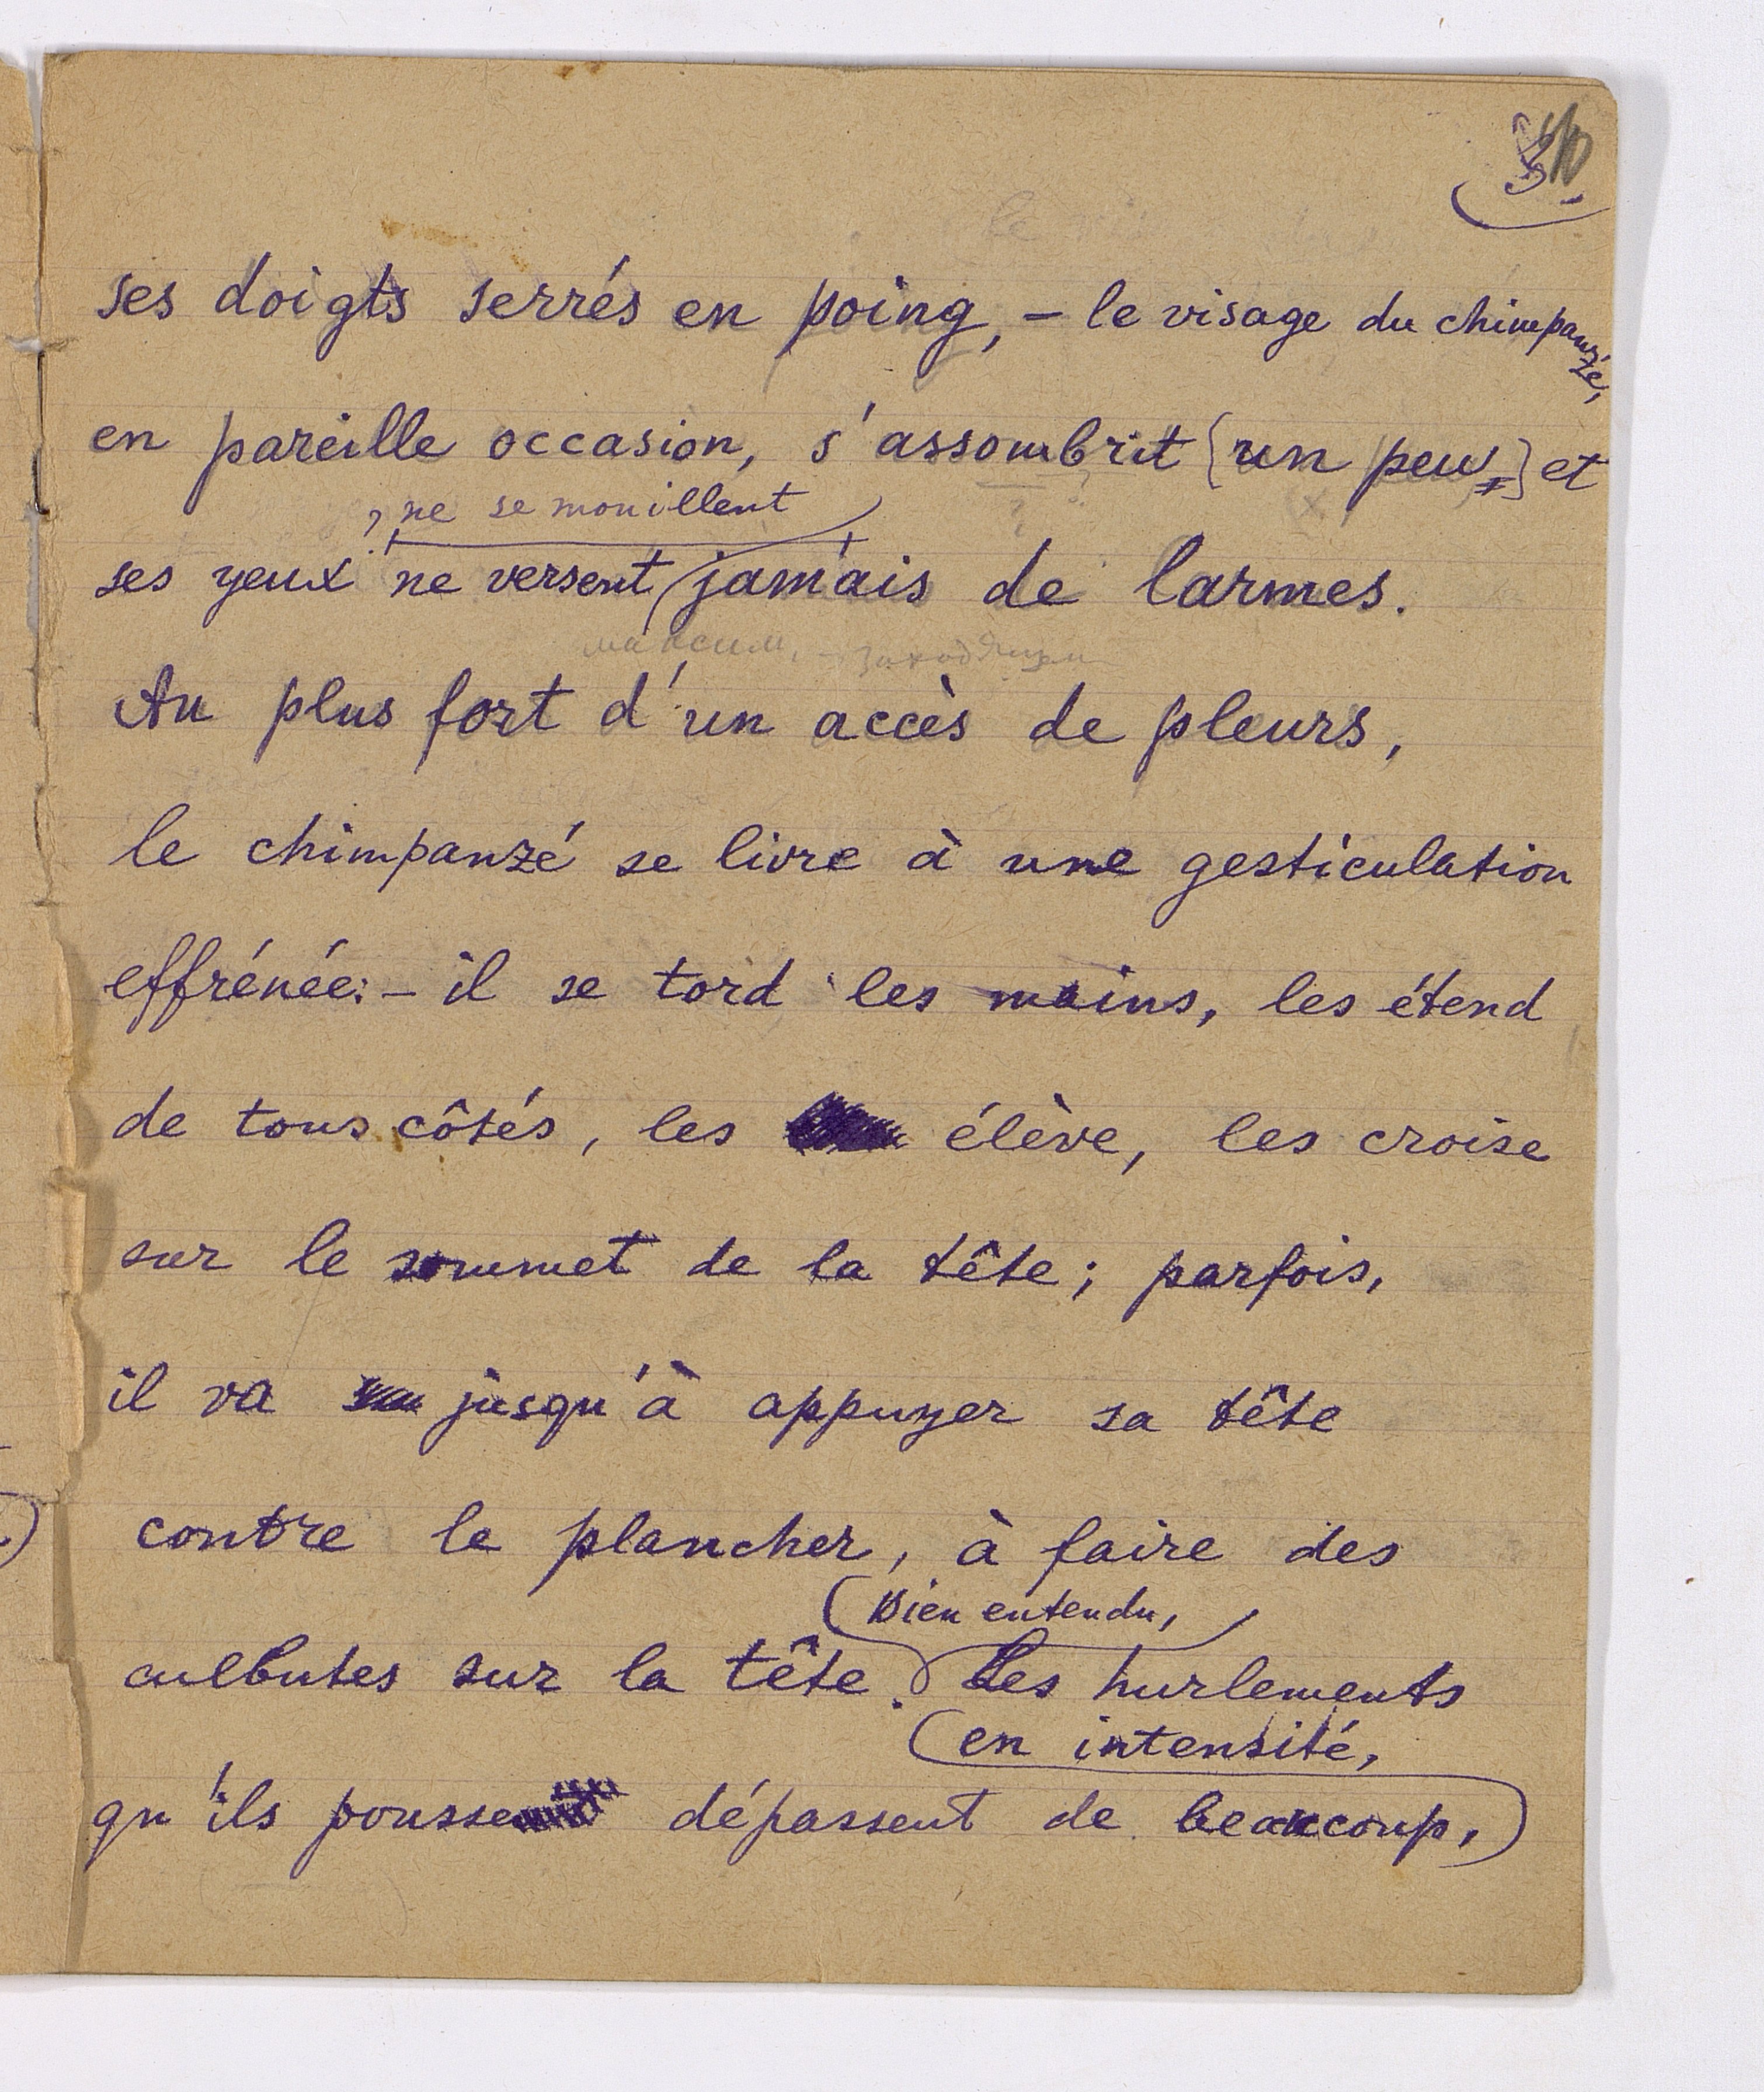 ses doigts serrés en poing, – le visage du chimpanzé,
en pareille occasion, s'assombrit [un peu] et
ne se mouillent
ses yeux ne versent jamais de larmes.
Au plus fort d'un accès de pleurs,
le chimpanzé se livre à une gesticulation
effrénée: – il se tord les mains, les étend
de tous côtés, les élève, les croise
sur le sommet de la tête; parfois,
il va jusqu'à appuyer sa tête
contre le plancher, à faire des
Bien entendu,
culbutes sur la tête. Les hurlements
en intensité,
qu'ils pousse dépassent de beaucoup,